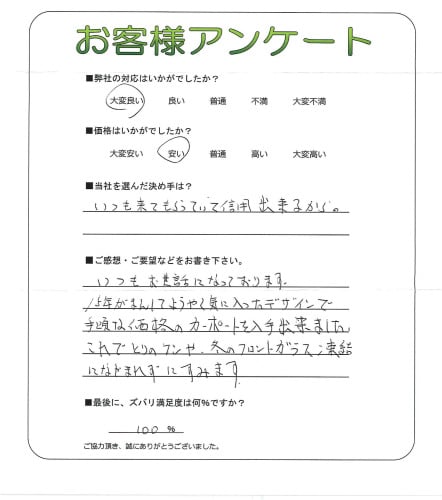 お客様アンケート
■弊社の対応はいかがでしたか？
大変良い 良い 普通 不満 大変不満
■価格はいかがでしたか？
大変安い 安い 普通 高い 大変高い
■当社を選んだ決め手は？
いつも来てもらっていて信用出来るから。
■ご感想・ご要望などをお書き下さい。
いつもお世話になっております。
15年がまんしてようやく気に入ったデザインで
手頃な価格のカーポートを入手出来ました。
これでとりのフンや、冬のフロントガラス凍結
になやまれずにすみます。
■最後に、ズバリ満足度は何%ですか？
100 %
ご協力頂き、誠にありがとうございました。